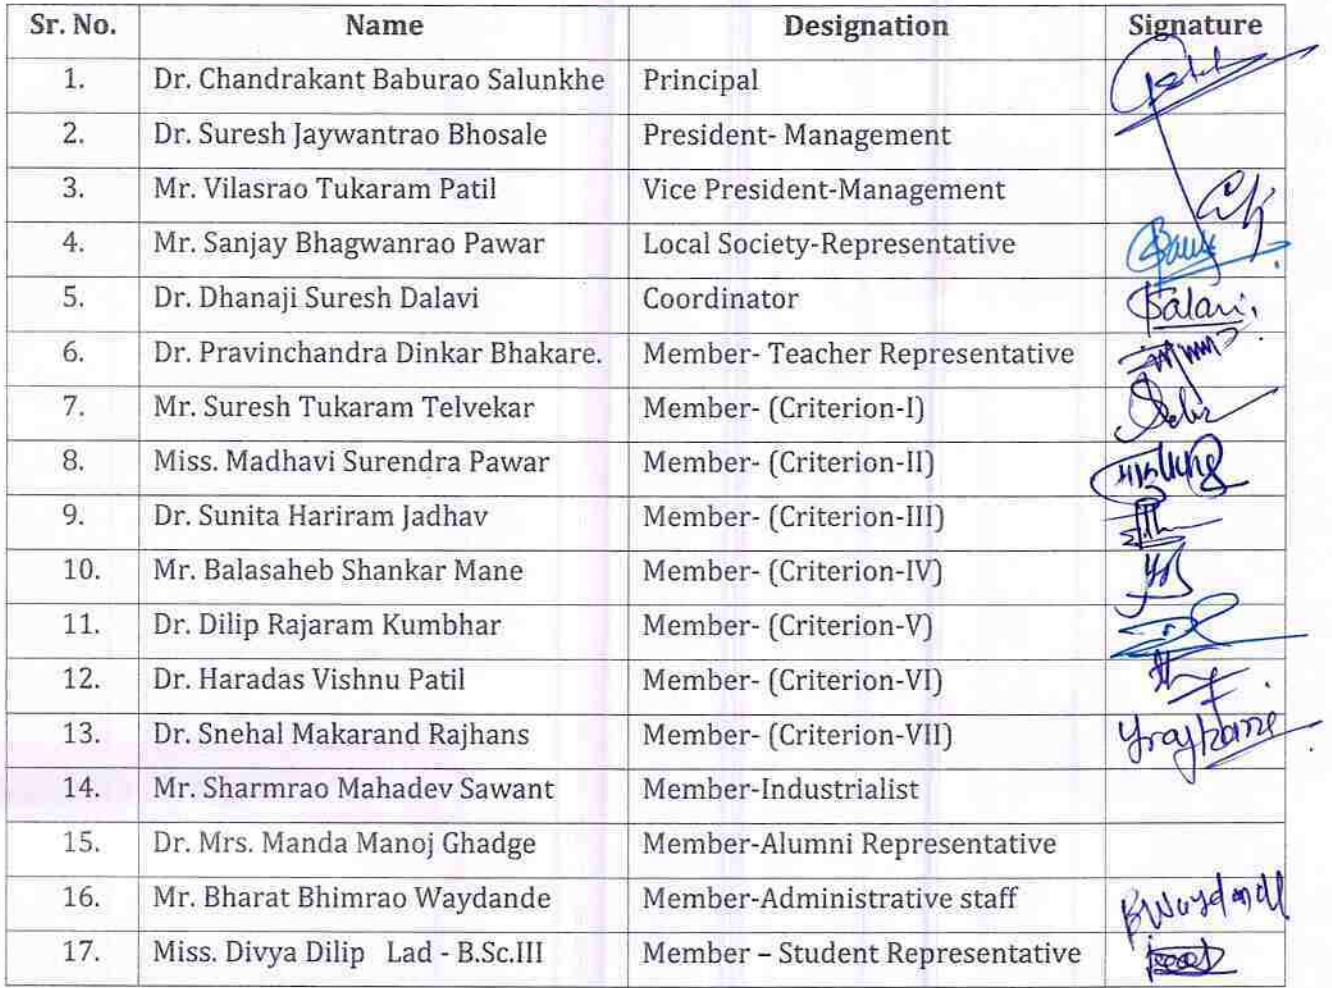 Sr. No. Name Designation Signature
1. Dr. Chandrakant Baburao Salunkhe Principal
2. Dr. Suresh Jaywantrao Bhosale President- Management
3. Mr. Vilasrao Tukaram Patil Vice President-Management
4. Mr. Sanjay Bhagwanrao Pawar Local Society-Representative
5. Dr. Dhanaji Suresh Dalavi Coordinator Dalavi.
6. Dr. Pravinchandra Dinkar Bhakare. Member- Teacher Representative
7. Mr. Suresh Tukaram Telvekar Member- (Criterion-I)
8. Miss. Madhavi Surendra Pawar Member- (Criterion-II)
9. Dr. Sunita Hariram Jadhav Member- (Criterion-III)
10. Mr. Balasaheb Shankar Mane Member- (Criterion-IV)
11. Dr. Dilip Rajaram Kumbhar Member- (Criterion-V)
12. Dr. Haradas Vishnu Patil Member- (Criterion-VI)
13. Dr. Snehal Makarand Rajhans Member- (Criterion-VII)
14. Mr. Sharmrao Mahadev Sawant Member-Industrialist
15. Dr. Mrs. Manda Manoj Ghadge Member-Alumni Representative
16. Mr. Bharat Bhimrao Waydande Member-Administrative staff BWaydande
17. Miss. Divya Dilip Lad - B.Sc.III Member – Student Representative